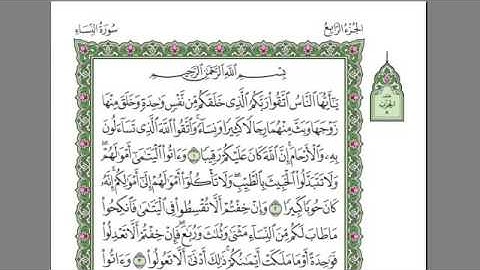 الجزء الرابع
سورة النساء
بِسْمِ ٱللَّهِ ٱلرَّحْمَٰنِ ٱلرَّحِيمِ
يَٰٓأَيُّهَا ٱلنَّاسُ ٱتَّقُوا۟ رَبَّكُمُ ٱلَّذِى خَلَقَكُم مِّن نَّفْسٍ وَٰحِدَةٍ وَخَلَقَ مِنْهَا
زَوْجَهَا وَبَثَّ مِنْهُمَا رِجَالًا كَثِيرًا وَنِسَآءً ۚ وَٱتَّقُوا۟ ٱللَّهَ ٱلَّذِى تَسَآءَلُونَ
بِهِۦ وَٱلْأَرْحَامَ ۚ إِنَّ ٱللَّهَ كَانَ عَلَيْكُمْ رَقِيبًا ١ وَءَاتُوا۟ ٱلْيَتَٰمَىٰٓ أَمْوَٰلَهُمْ ۖ
وَلَا تَتَبَدَّلُوا۟ ٱلْخَبِيثَ بِٱلطَّيِّبِ ۖ وَلَا تَأْكُلُوٓا۟ أَمْوَٰلَهُمْ إِلَىٰٓ أَمْوَٰلِكُمْ ۚ إِنَّهُۥ
كَانَ حُوبًا كَبِيرًا ٢ وَإِنْ خِفْتُمْ أَلَّا تُقْسِطُوا۟ فِى ٱلْيَتَٰمَىٰ فَٱنكِحُوا۟
مَا طَابَ لَكُم مِّنَ ٱلنِّسَآءِ مَثْنَىٰ وَثُلَٰثَ وَرُبَٰعَ ۖ فَإِنْ خِفْتُمْ أَلَّا تَعْدِلُوا۟
فَوَٰحِدَةً أَوْ مَا مَلَكَتْ أَيْمَٰنُكُمْ ۚ ذَٰلِكَ أَدْنَىٰٓ أَلَّا تَعُولُوا۟ ٣ وَءَاتُوا۟